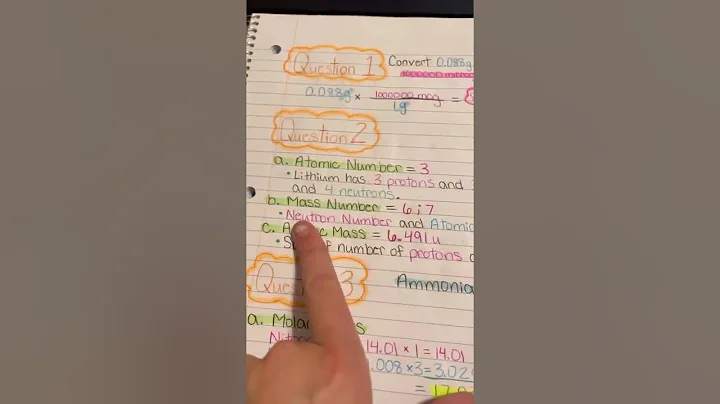 Question 1 Convert 0.083g
1000000 mcg
0.083g × 1000000 mcg =
1g
Question 2
a. Atomic Number = 3
• Lithium has 3 protons and
and 4 neutrons.
b. Mass Number = 6;7
• Neutron Number and Atomic
c. Mass = 6.491u
• number of protons
3
Ammonia
a.
14.01 × 1 = 14.01
.008 × 3 =
=